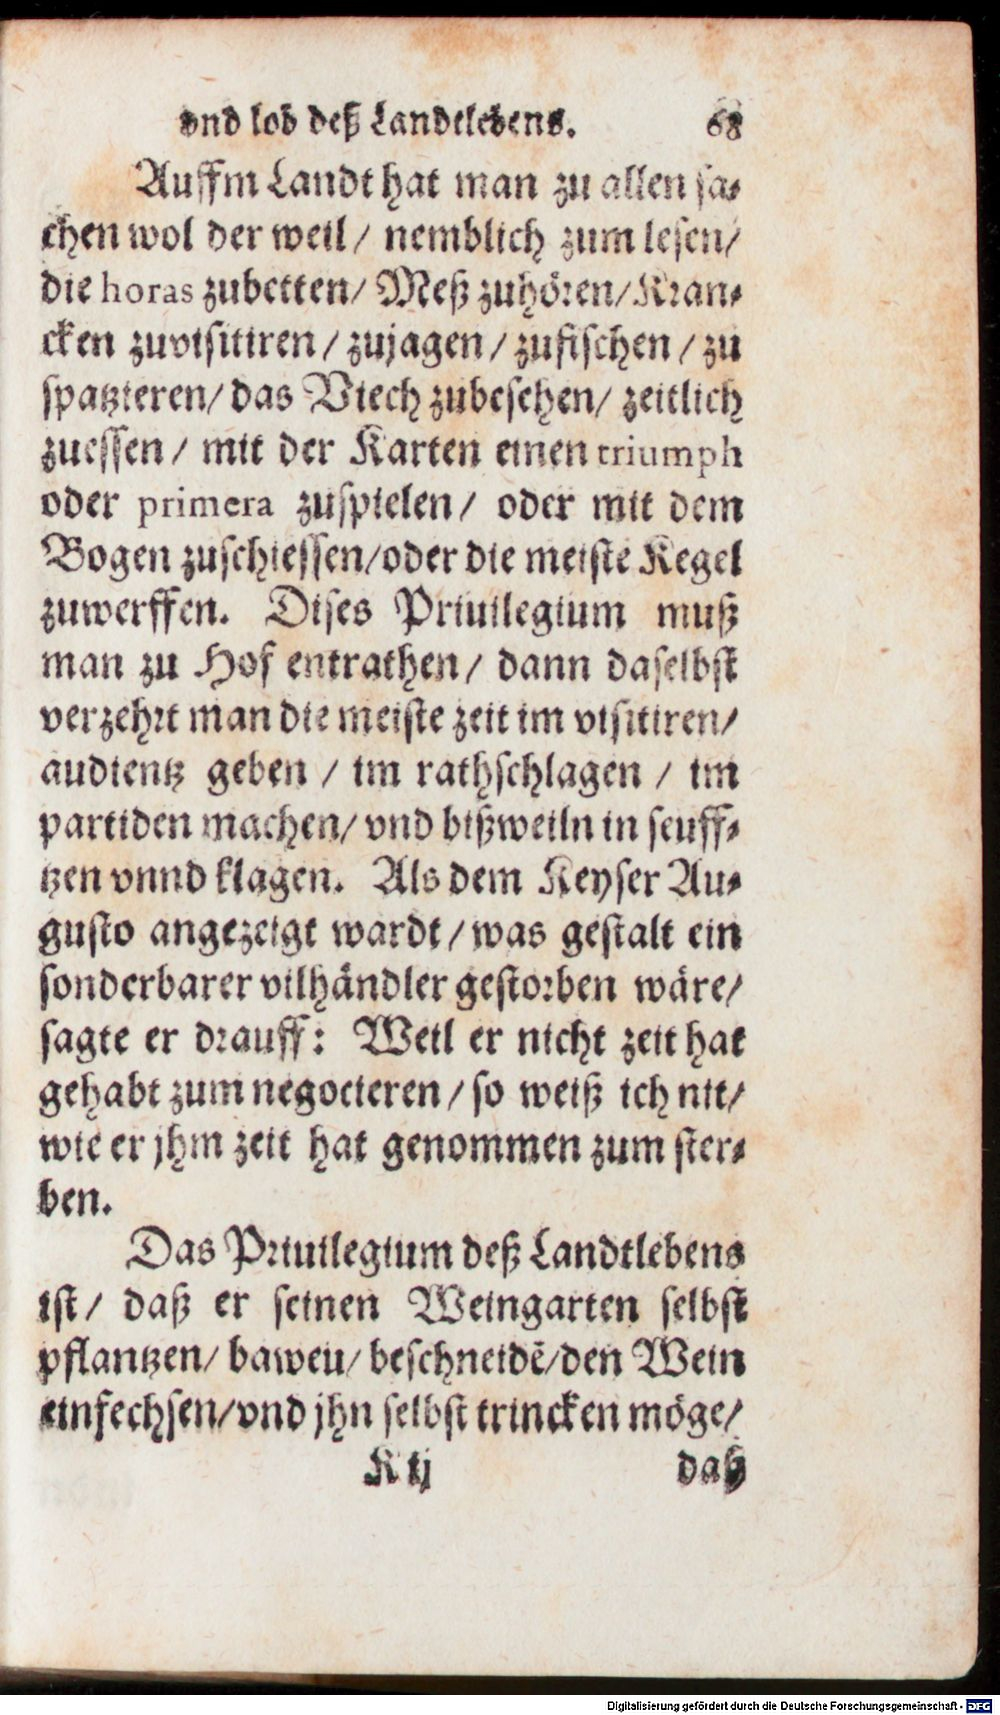 vnd lob deß Landtlebens. 68
Auffm Landt hat man zu allen sa-
chen wol der weil / nemblich zum lesen/
die horas zubetten/ Meß zuhören/ Kran-
cken zuvisitiren / zujagen / zufischen / zu
spatzieren/ das Viech zubesehen/ zeitlich
zuessen / mit der Karten einen triumph
oder primera zuspielen/ oder mit dem
Bogen zuschiessen/oder die meiste Kegel
zuwerffen. Dises Priuilegium muß
man zu Hof entrathen/ dann daselbst
verzehrt man die meiste zeit im visitiren/
audientz geben / im rathschlagen / im
partiden machen/ vnd bißweiln in seuff-
tzen vnnd klagen. Als dem Keyser Au-
gusto angezeigt wardt / was gestalt ein
sonderbarer vilhändler gestorben wäre/
sagte er drauff: Weil er nicht zeit hat
gehabt zum negocieren / so weiß ich nit/
wie er jhm zeit hat genommen zum ster-
ben.
Das Priuilegium deß Landtlebens
ist/ daß er seinen Weingarten selbst
pflantzen/ bawen/ beschneidē/den Wein
einfechsen/vnd jhn selbst trincken möge/
K ij daß
Digitalisierung gefördert durch die Deutsche Forschungsgemeinschaft - DFG